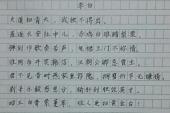 李白
大道如青天，我独不得出。
羞逐长安社中儿，赤鸡白狗赌梨栗。
弹剑作歌奏苦声，曳裾王门不称情。
淮阴市井笑韩信，汉朝公卿忌贾生。
君不见昔时燕家重郭隗，拥彗折节无嫌猜。
剧辛乐毅感恩分，输肝剖胆效英才。
昭王白骨萦蔓草，谁人更扫黄金台！